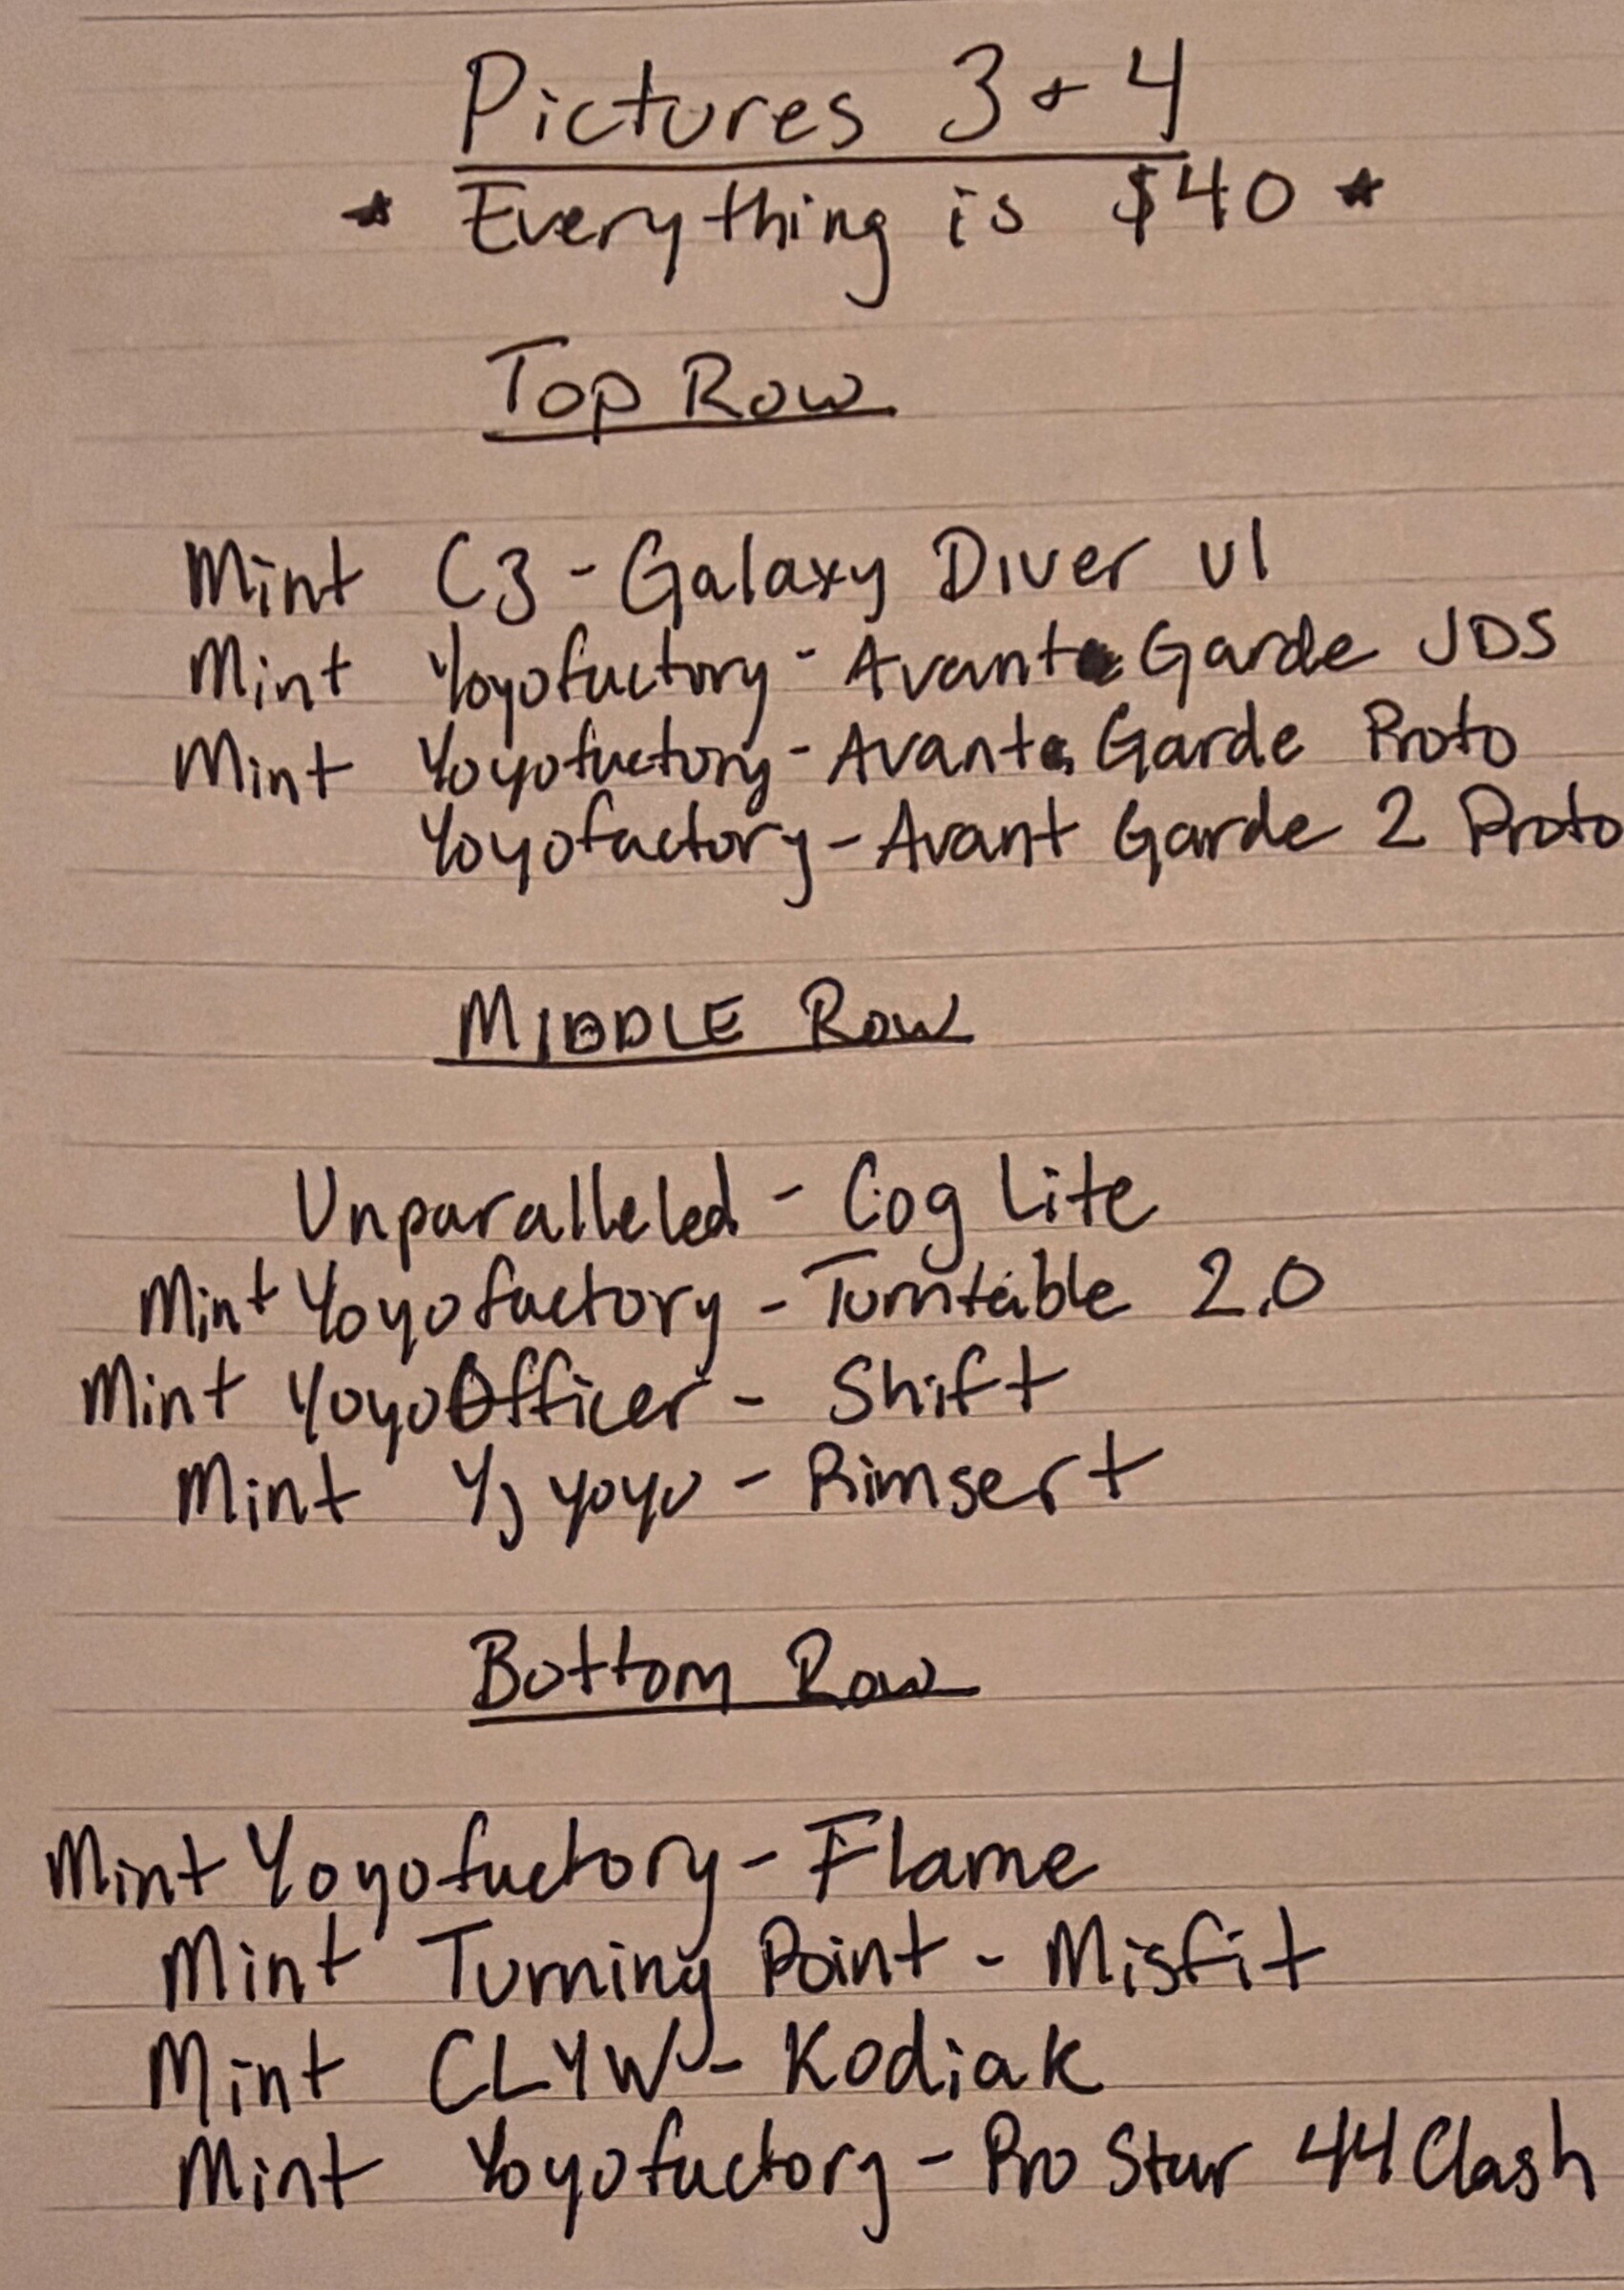 Pictures 3 & 4
* Everything is $40 *
Top Row
Mint C3 - Galaxy Diver v1
Mint Yoyofactory - Avant Garde JDS
Mint Yoyofactory - Avant Garde Proto
Yoyofactory - Avant Garde 2 Proto
MIDDLE Row
Unparalleled - Cog Lite
Mint Yoyofactory - Turntable 2.0
Mint YoyoOfficer - Shift
Mint YJ yoyo - Rimsert
Bottom Row
Mint Yoyofactory - Flame
Mint Turning Point - Misfit
Mint CLYW - Kodiak
Mint Yoyofactory - Pro Star 44 Clash